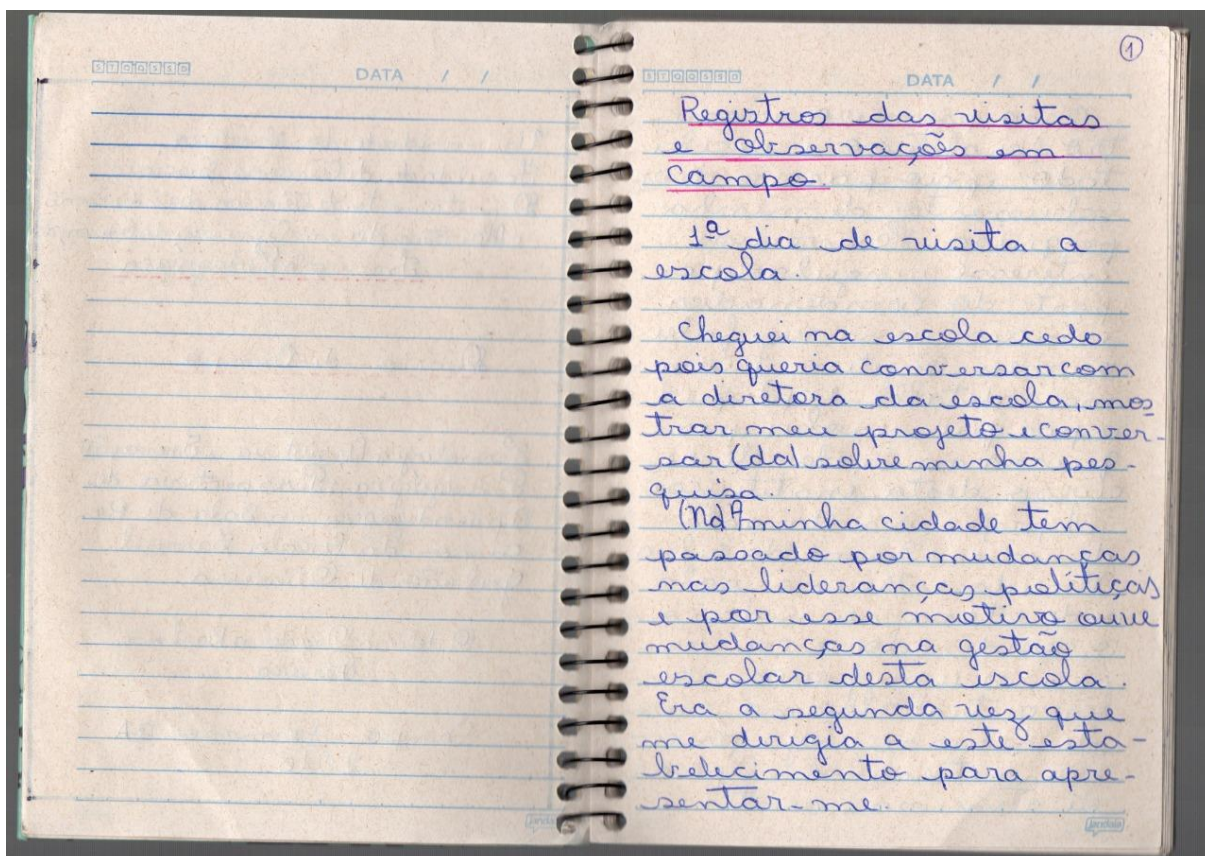 STQQSSD
DATA / /
1
STQQSSD
DATA / /
Registros das visitas
e observações em
campo.
1ª dia de visita a
escola.
Cheguei na escola cedo
pois queria conversar com
a diretora da escola, mos
trar meu projeto e conver-
sar (da) sobre minha pes-
quisa.
(Na) A minha cidade tem
passado por mudanças
nas lideranças políticas
e por esse motivo ouve
mudanças na gestão
escolar desta escola.
Era a segunda vez que
me dirigia a este esta-
belecimento para apre-
sentar-me.
jandaia